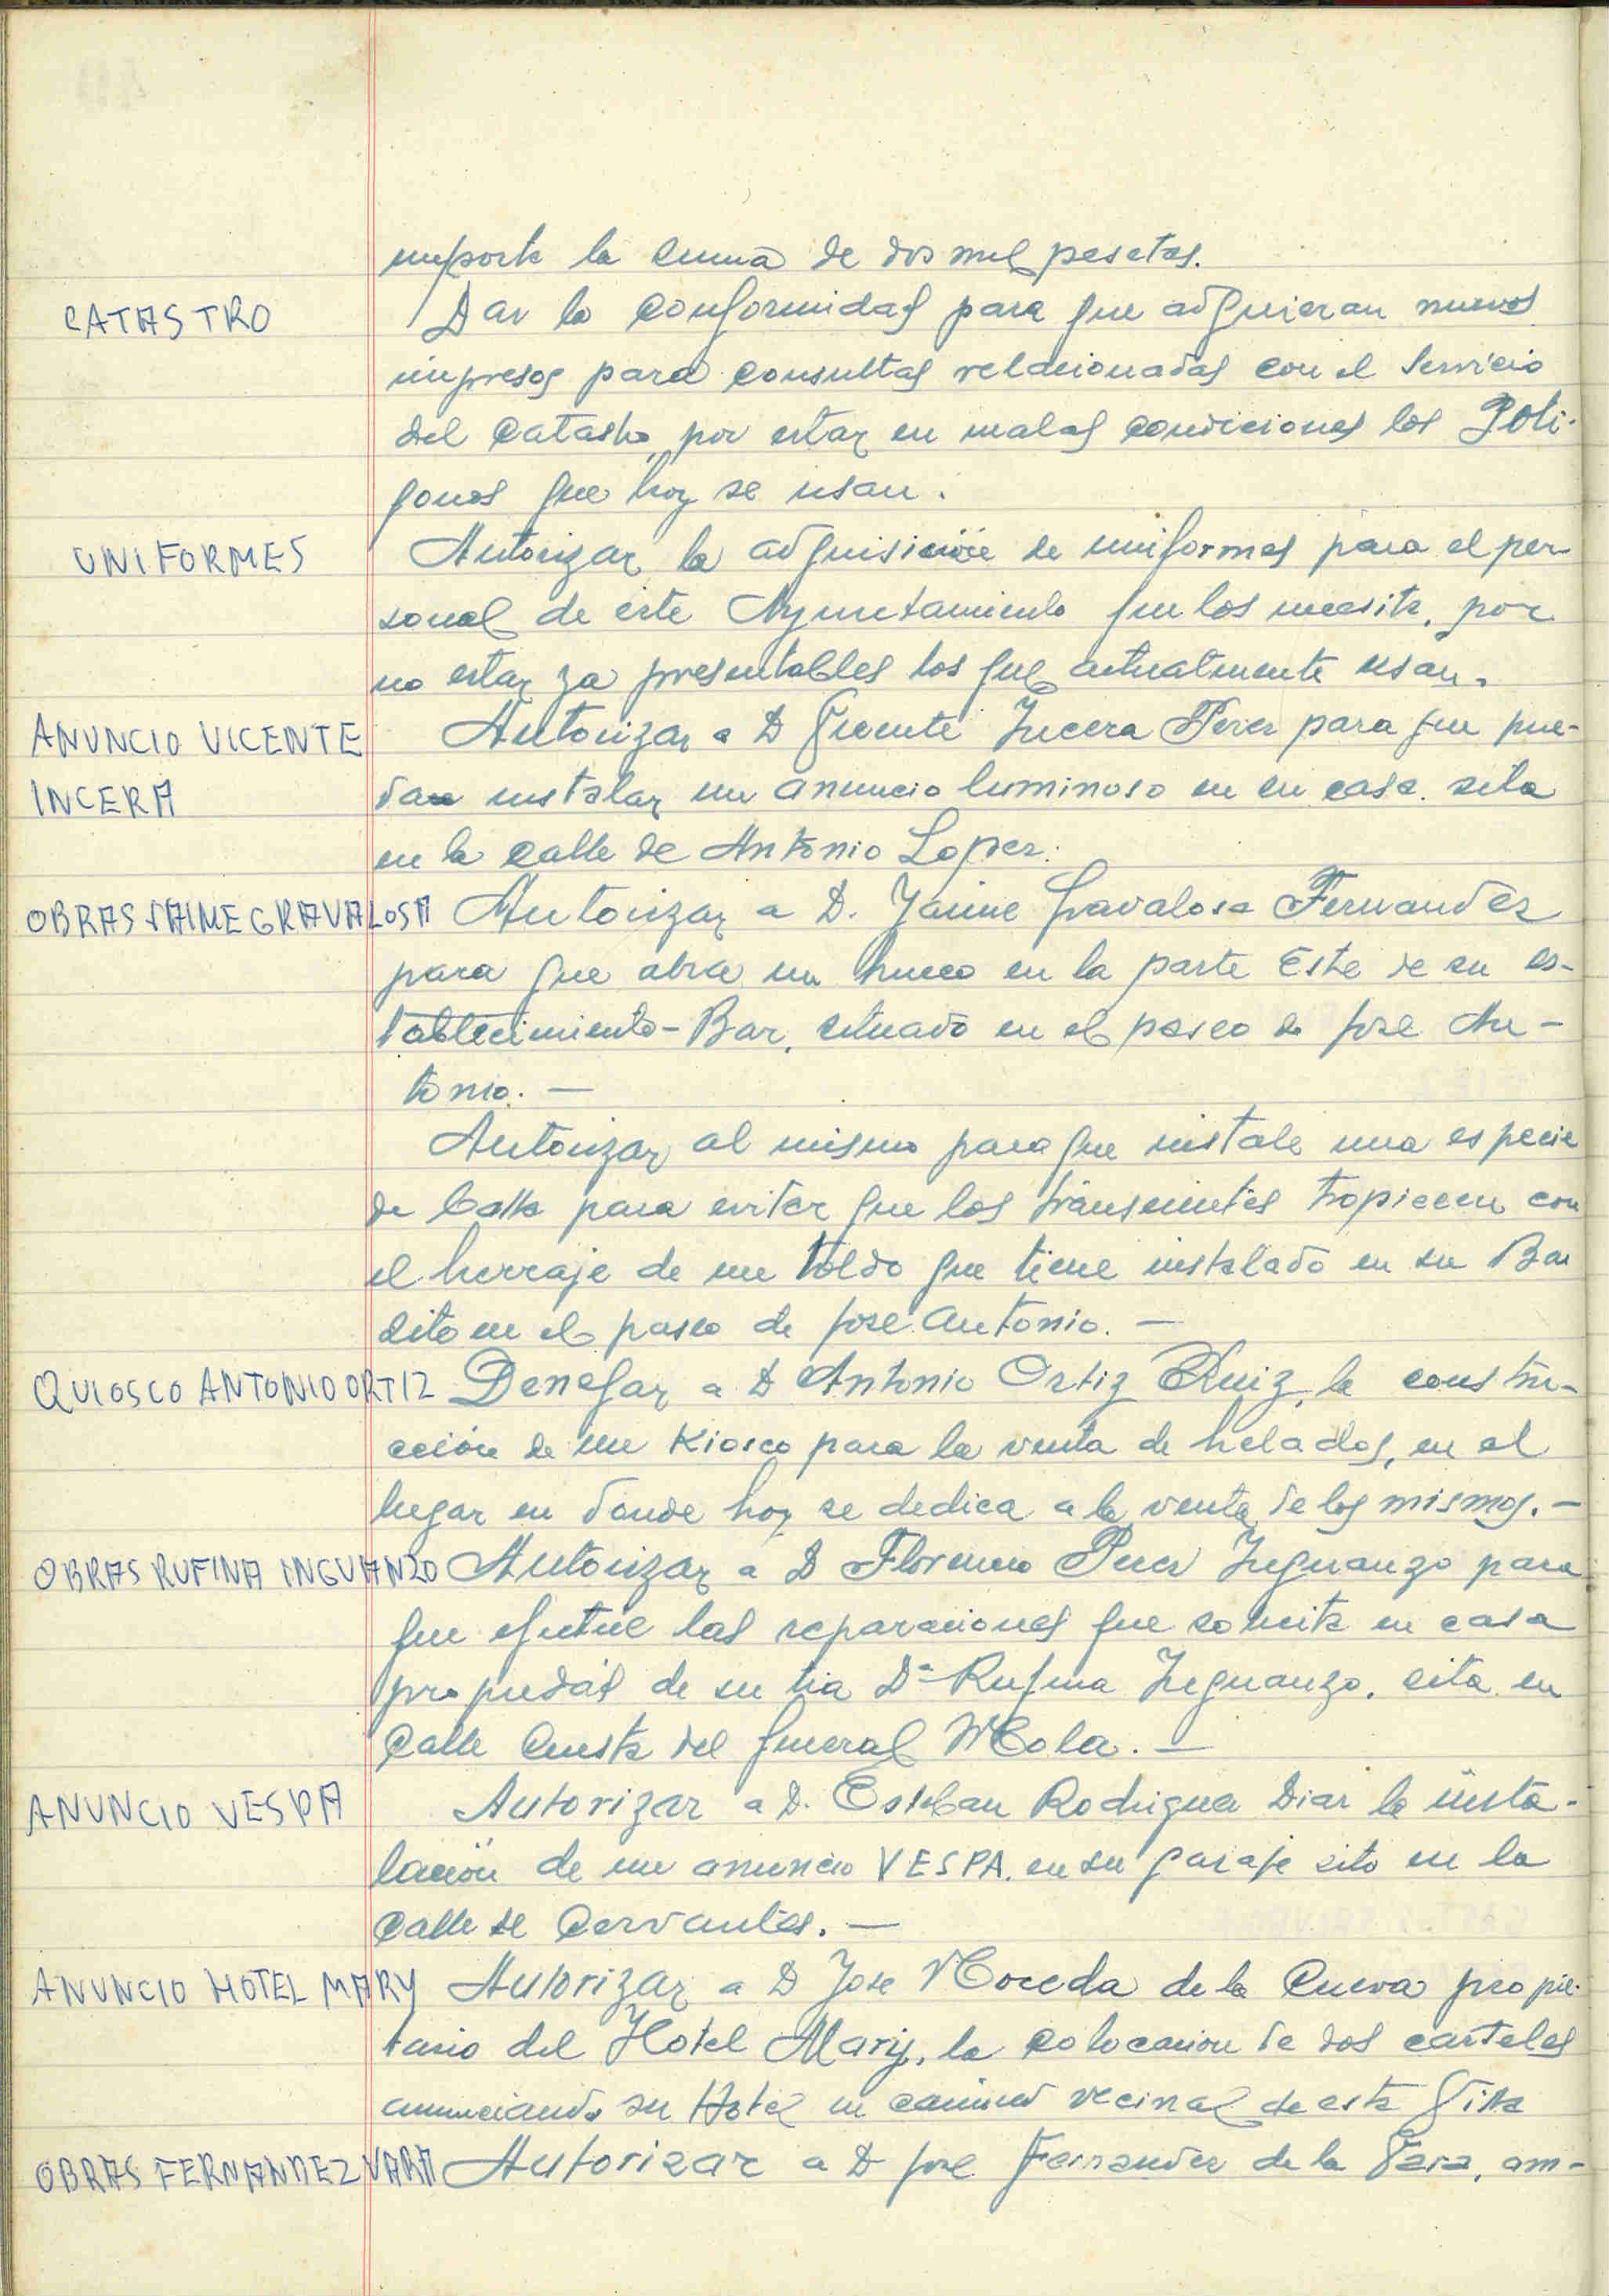 importe la suma de dos mil pesetas.
CATASTRO
Dar la conformidad para que adquieran nuevos
impresos para consultas relacionadas con el Servicio
del Catastro, por estar en malas condiciones los Poli-
gonos que hoy se usan.
UNIFORMES
Autorizar la adquisición de uniformes para el per-
sonal de este Ayuntamiento que los necesita, por
no estar ya presentables los que actualmente usan.
ANUNCIO VICENTE
INCERA
Autorizar a D Vicente Incera Perez para que pue-
da instalar un anuncio luminoso en su casa sita
en la calle de Antonio Lopez.
OBRAS JAIME GRAVALOSA
Autorizar a D. Jaime Gravalosa Fernandez
para que abra un hueco en la parte Este de su es-
tablecimiento-Bar, situado en el paseo de Jose An-
tonio. —
Autorizar al mismo para que instale una especie
de valla para evitar que los transeuntes tropiecen con
el herraje de un toldo que tiene instalado en su Bar
sito en el paseo de Jose Antonio. —
QUIOSCO ANTONIO ORTIZ
Denegar a D Antonio Ortiz Ruiz, la constru-
cción de un Kiosco para la venta de helados, en el
lugar en donde hoy se dedica a la venta de los mismos. —
OBRAS RUFINA INGUANZO
Autorizar a D Florencio Perez Inguanzo para
que efectue las reparaciones que solicita en casa
propiedad de su tia Dª Rufina Inguanzo, sita en
Calle Cuesta del General Mola. —
ANUNCIO VESPA
Autorizar a D. Esteban Rodriguez Diaz la insta-
lación de un anuncio VESPA, en su garaje sito en la
Calle de Cervantes. —
ANUNCIO HOTEL MARY
Autorizar a D Jose Noceda de la Cueva propie-
tario del Hotel Mary, la colocacion de dos carteles
anunciando su Hotel en camino vecinal de esta Villa
OBRAS FERNANDEZ VARA
Autorizar a D Jose Fernandez de la Vara, am-